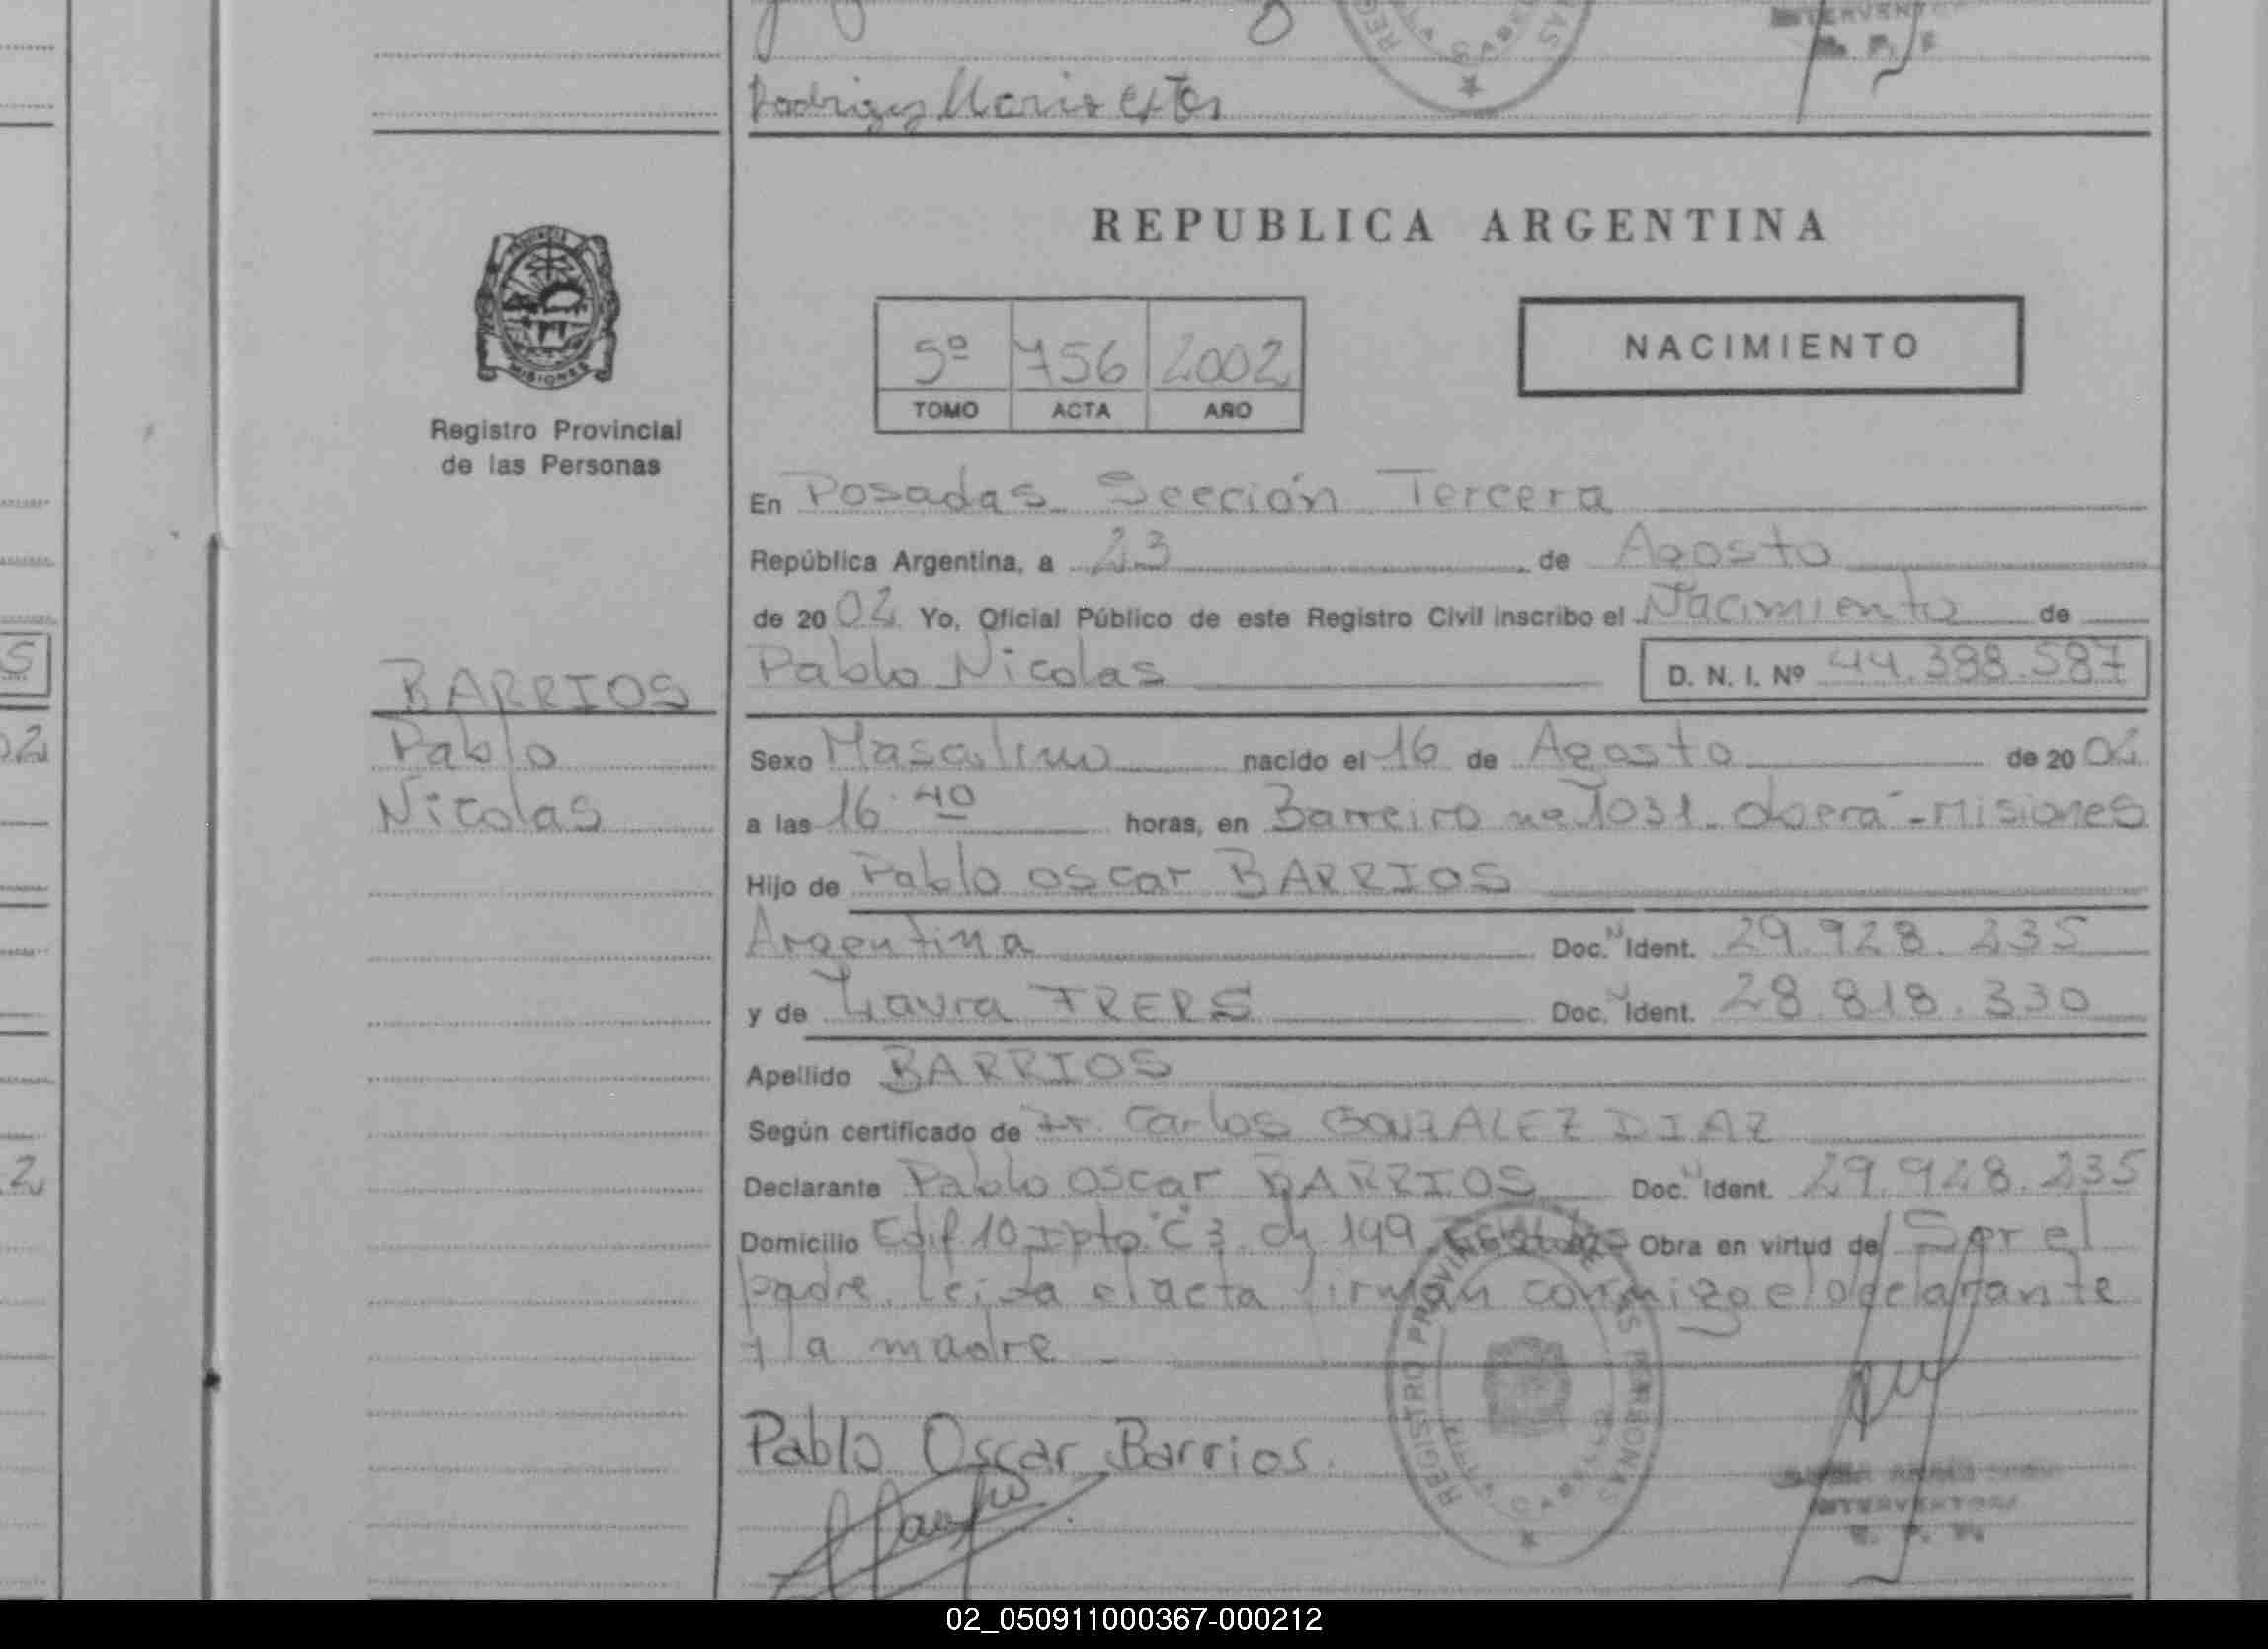 Rodriguez Maria Ester
REPUBLICA ARGENTINA
5º 756 2002
TOMO ACTA AÑO
NACIMIENTO
MISIONES
Registro Provincial
de las Personas
En Posadas Sección Tercera
República Argentina, a 23 de Agosto
de 2002 Yo, Oficial Público de este Registro Civil inscribo el Nacimiento de
Pablo Nicolas D. N. I. Nº 44.398.587
BARRIOS
Pablo
Nicolas
Sexo Masculino nacido el 16 de Agosto de 2002
a las 16.40 horas, en Barreiro nº 1031 Oberá - Misiones
Hijo de Pablo Oscar BARRIOS
Argentina Doc. N Ident. 29.928.235
y de Laura FRERS Doc. N Ident. 28.818.330
Apellido BARRIOS
Según certificado de Dr. Carlos GONZALEZ DIAZ
Declarante Pablo Oscar BARRIOS Doc. N Ident. 29.928.235
Domicilio Edif 10 Dpto "C" 3. Ch 149 Obra en virtud de Ser el
padre. Leida el acta firman conmigo el declarante
y la madre
REGISTRO PROVINCIAL DE LAS PERSONAS
Pablo Oscar Barrios.
INTERVENTORA
02_050911000367-000212